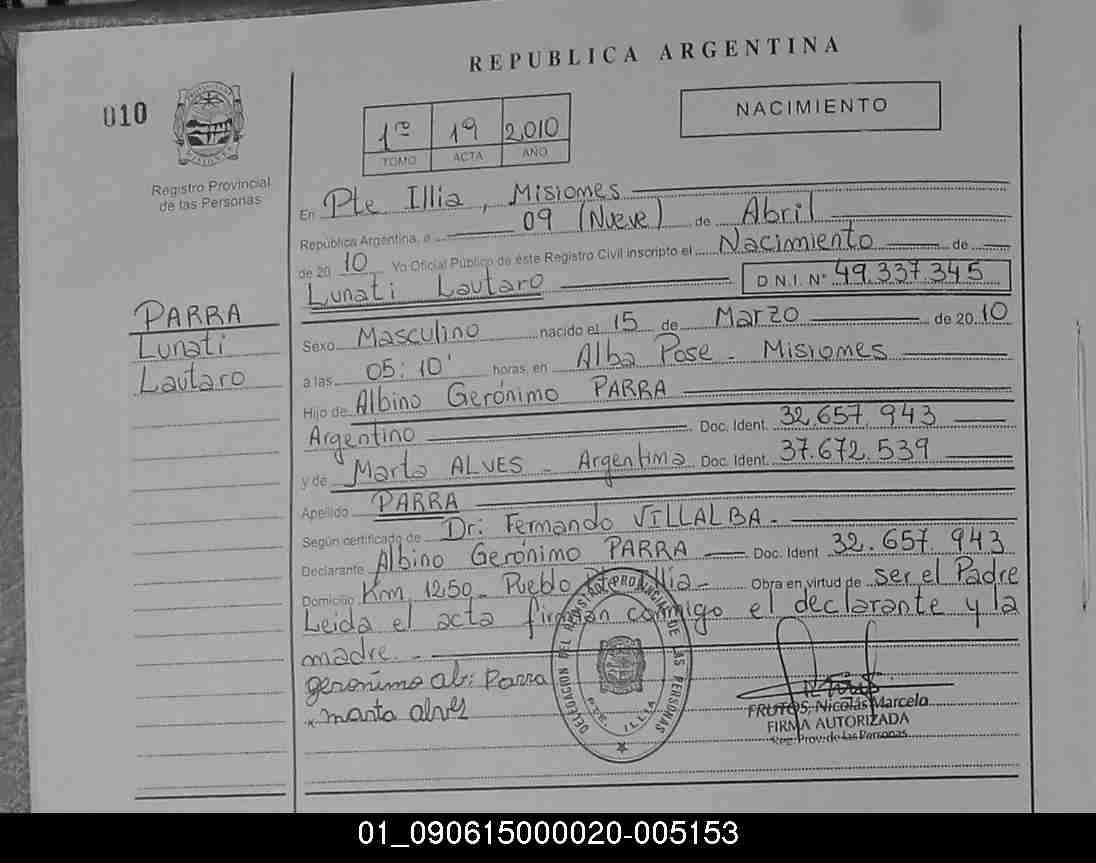 REPUBLICA ARGENTINA
010
NACIMIENTO
1ro 19 2.010
TOMO ACTA AÑO
Registro Provincial
de las Personas
En Pte Illia, Misiones
República Argentina, a 09 (Nueve) de Abril
de 20 10 Yo Oficial Público de éste Registro Civil inscripto el Nacimiento de
Lunati Lautaro D.N.I. N° 49.337.345
PARRA
Lunati
Lautaro
Sexo Masculino nacido el 15 de Marzo de 20 10
a las 05:10' horas, en Alba Pose - Misiones
Hijo de Albino Gerónimo PARRA
Argentino Doc. Ident. 32.657.943
y de Marta ALVES - Argentina Doc. Ident. 37.672.539
Apellido PARRA
Según certificado de Dr: Fernando VILLALBA.-
Declarante Albino Gerónimo PARRA Doc. Ident 32.657.943
Domicilio Km 1250 - Pueblo Pte Illia - Obra en virtud de ser el Padre
Leida el acta firman conmigo el declarante y la
madre.-
geronimo al: Parra
x marta alves
DELEGACION DEL REGISTRO PROVINCIAL DE LAS PERSONAS
PTE. ILLIA
FRUTOS, Nicolás Marcelo
FIRMA AUTORIZADA
Reg. Prov. de las Personas
01_090615000020-005153